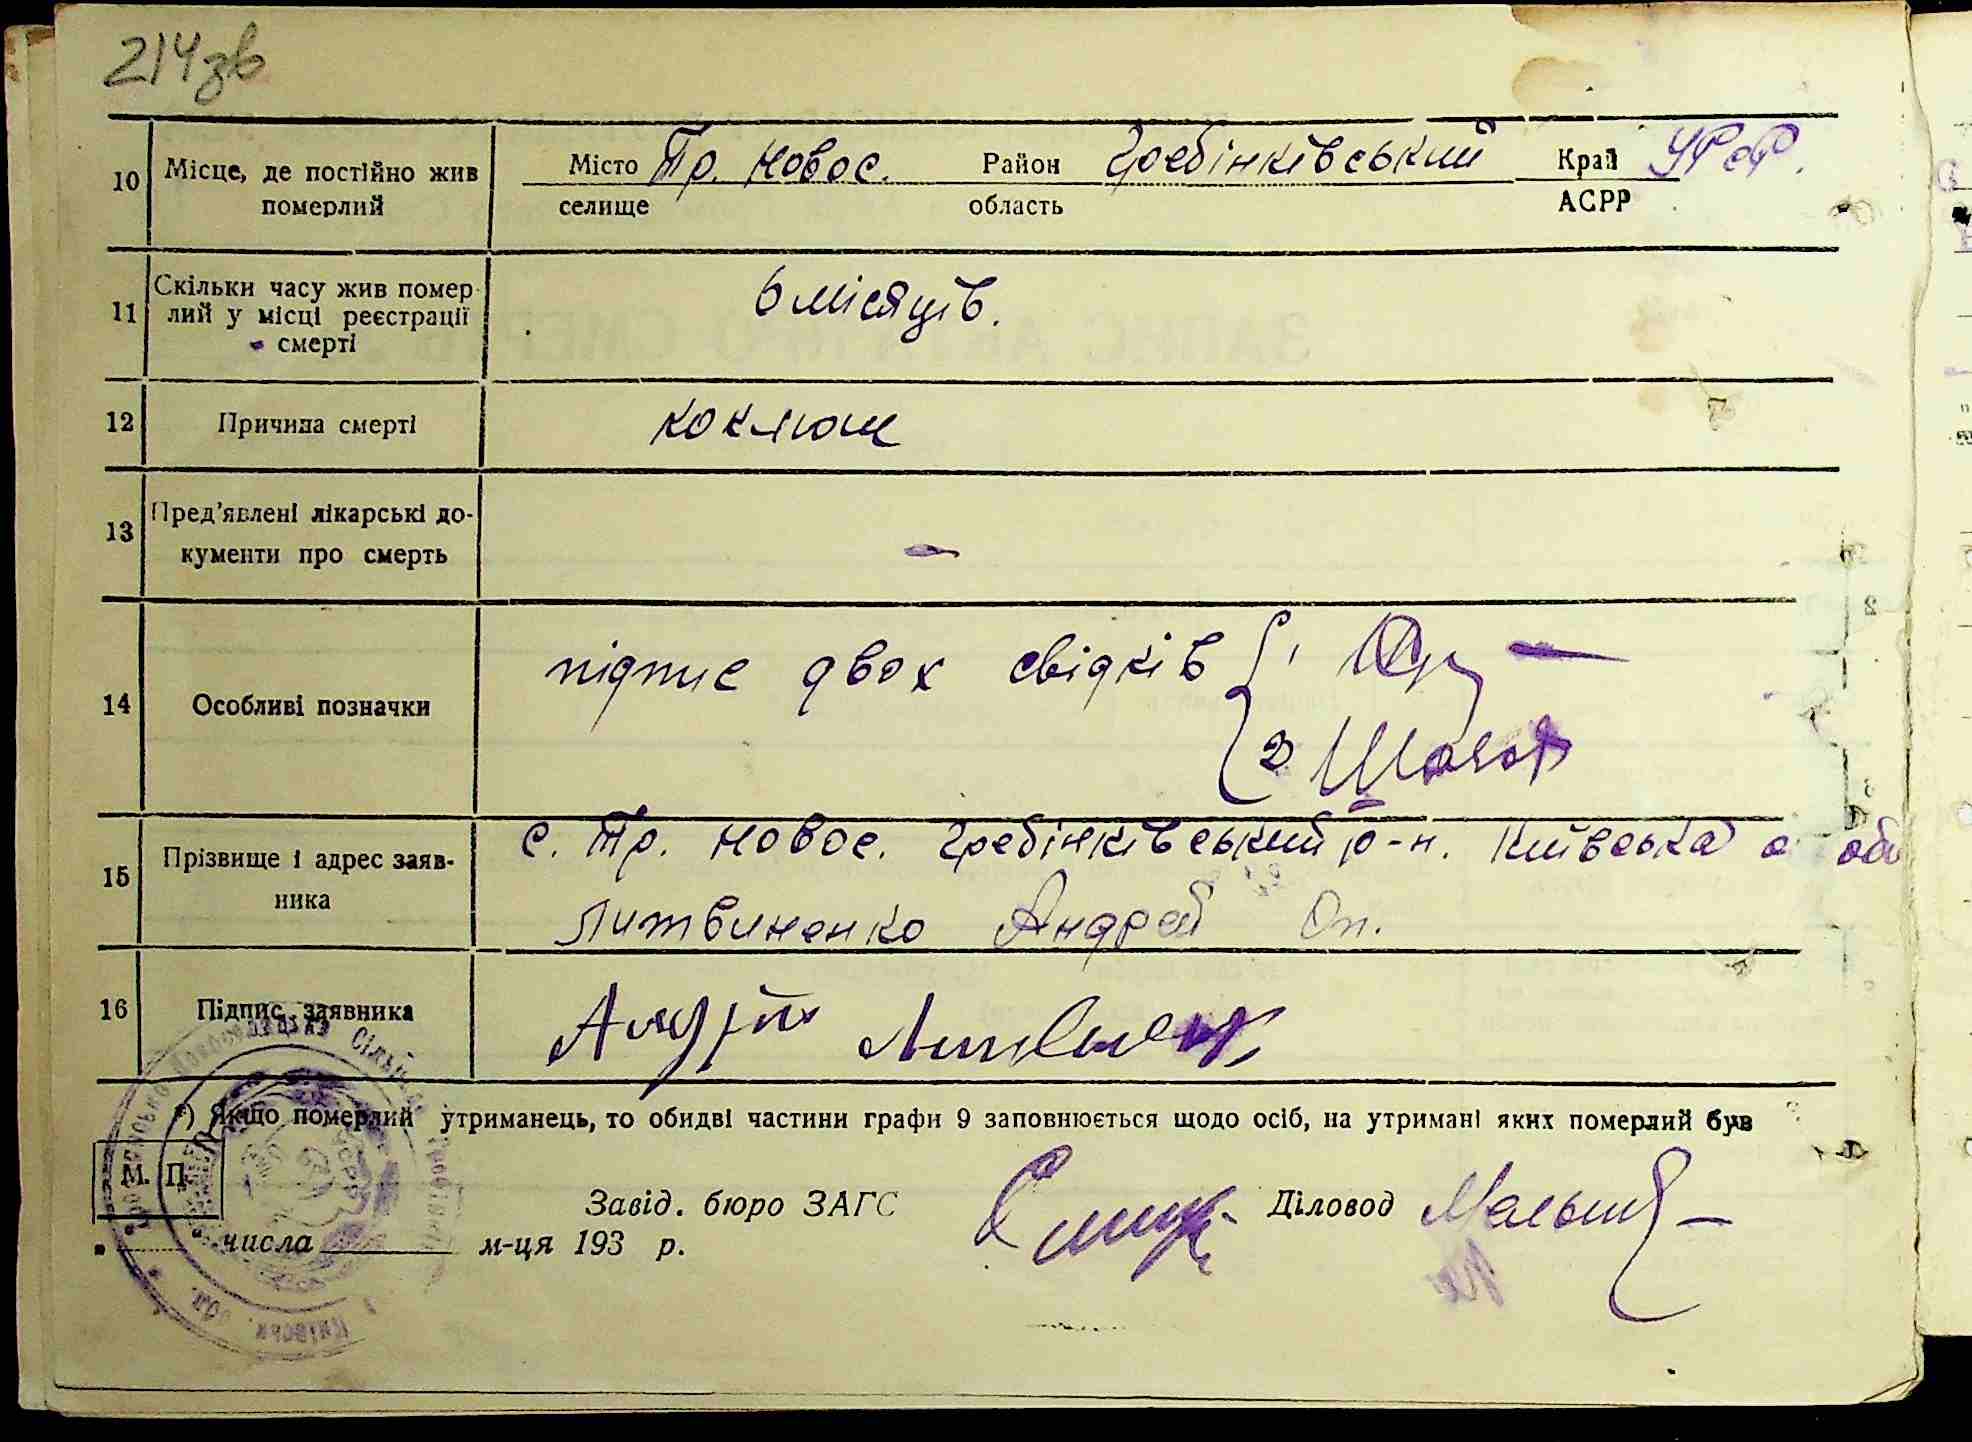 214зв
10 Місце, де постійно жив померлий Місто селище Тр. Новос. Район область Гребінківський Край АСРР УРСР.
11 Скільки часу жив померлий у місці реєстрації смерті 6 місяців.
12 Причина смерті коклюш
13 Пред'явлені лікарські документи про смерть -
14 Особливі позначки підпис двох свідків { 1
2
15 Прізвище і адрес заявника с. Тр. Новос. Гребінківський р-н. Київська обл
Литвиненко Андрей Оп.
16 Підпис заявника Андрій Литвиненк
*) Якщо померлий утриманець, то обидві частини графи 9 заповнюється щодо осіб, на утримані яких померлий був
М. П.
Завід. бюро ЗАГС Діловод
" числа м-ця 193 р.